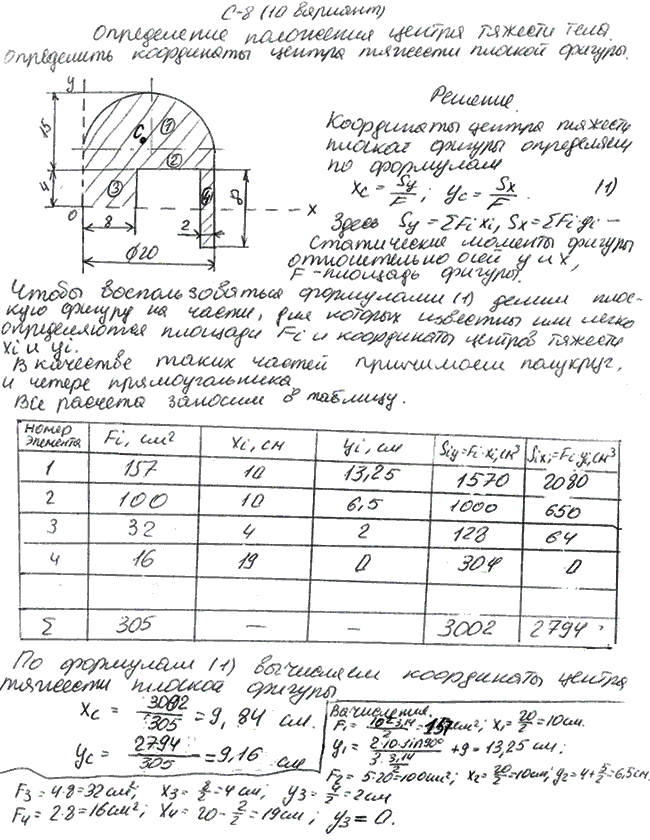 С-8 (10 вариант)
Определение положения центра тяжести тела.
Определить координаты центра тяжести плоской фигуры.
y
15
4
C
1
2
3
4
0
x
8
2
8
Ф20
Решение.
Координаты центра тяжести
плоской фигуры определяем
по формулам
Xc = Sy/F ; Yc = Sx/F . (1)
Здесь Sy = ΣFi xi, Sx = ΣFi yi –
Статические моменты фигуры
относительно осей y и x,
F – площадь фигуры.
Чтобы воспользоваться формулами (1) делим плос-
кую фигуру на части, для которых известны или легко
определяются площади Fi и координаты центров тяжести
xi и yi.
В качестве таких частей принимаем полукруг,
и четере прямоугольника
Все расчета заносим в таблицу.
Номер элемента Fi, см² Xi, см Yi, см Siy=Fi·xi, см³ Six=Fi·yi, см³
1 157 10 13,25 1570 2080
2 100 10 6,5 1000 650
3 32 4 2 128 64
4 16 19 0 304 0
Σ 305 — — 3002 2794
По формулам (1) вычисляем координаты центра
тяжести плоской фигуры
Xc = 3002/305 = 9,84 см.
Yc = 2794/305 = 9,16 см
Вычисления.
F1 = 10²·3,14/2 = 157 см²; X1 = 20/2 = 10см.
y1 = 2·10·sin90°/3·3,14/2 + 9 = 13,25 см;
F2 = 5·20 = 100см²; X2 = 20/2 = 10см; y2 = 4+5/2 = 6,5см.
F3 = 4·8 = 32см²; X3 = 8/2 = 4 см; y3 = 4/2 = 2см
F4 = 2·8 = 16см²; X4 = 20 - 2/2 = 19см; y3 = 0.